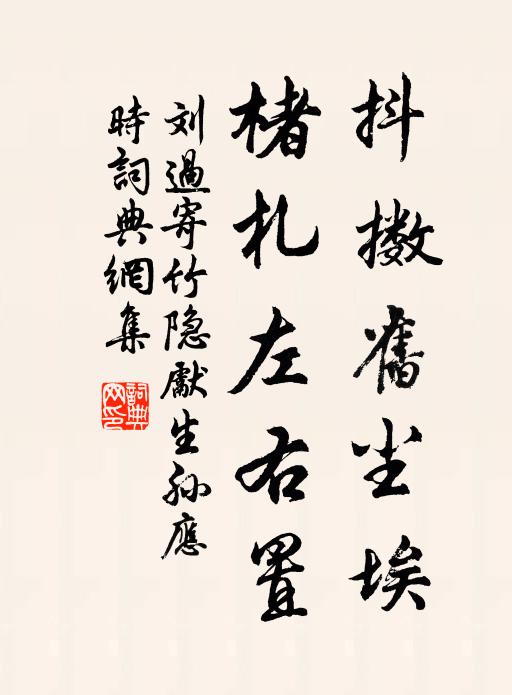 抖擻舊尘埃
楮札左右置
刘過寄竹隐獻生孙應
時詞典網集
詞典網印